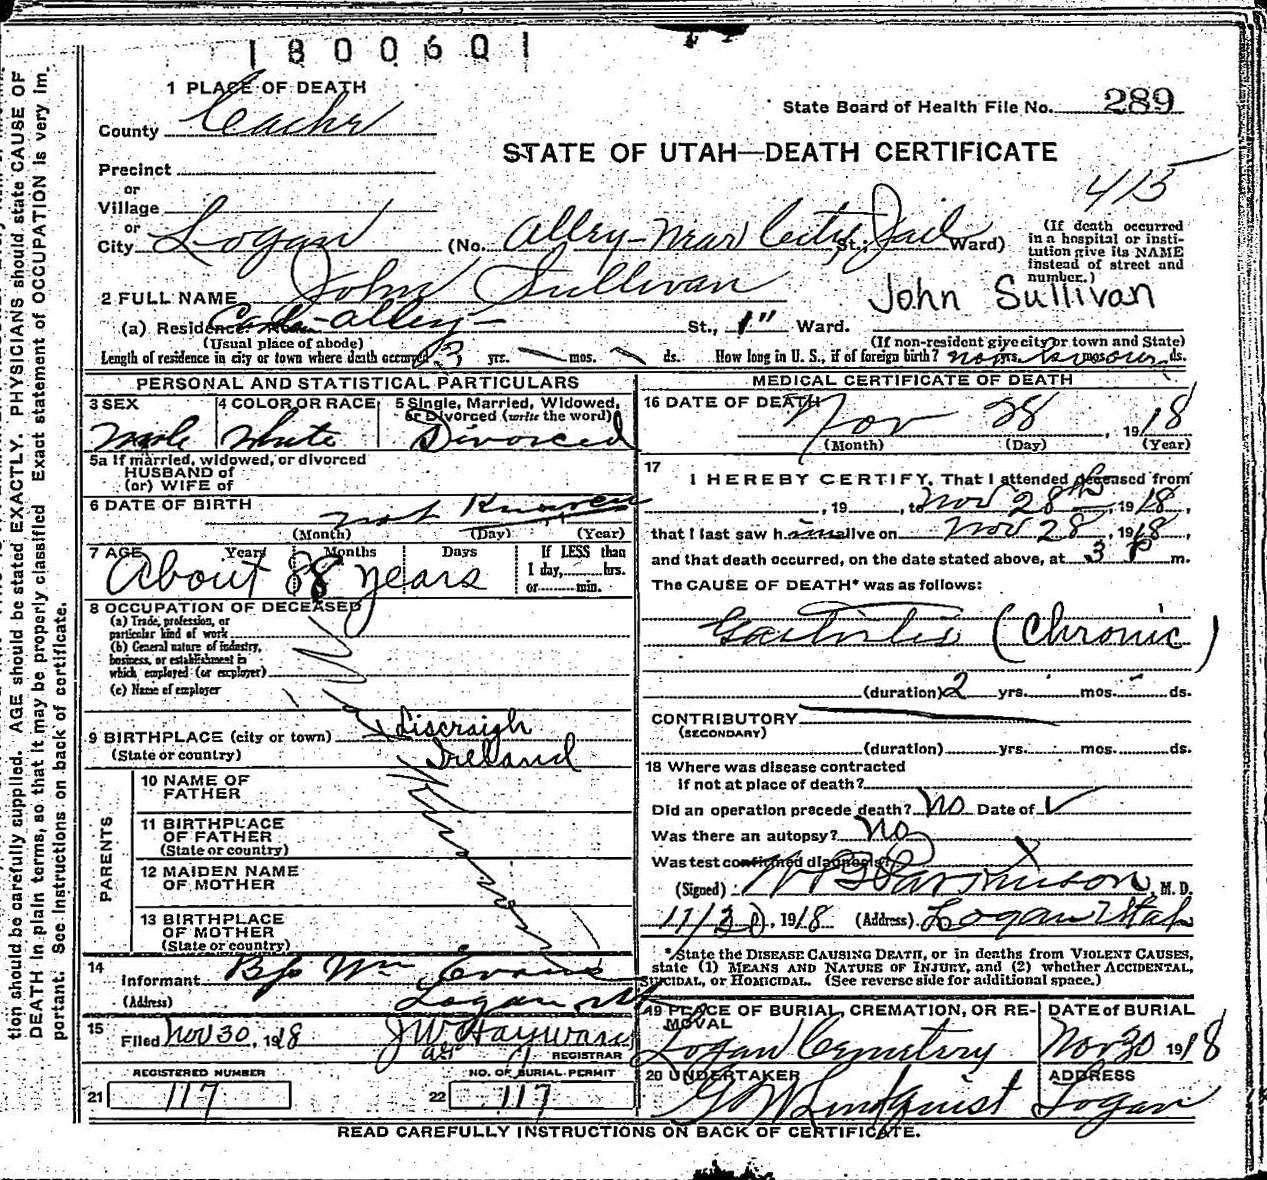 1800601
1 PLACE OF DEATH
County Cache
State Board of Health File No. 289
STATE OF UTAH—DEATH CERTIFICATE
Precinct
or
Village
or
415
City Logan (No. Alley-Near City Jail St.; Ward)
(If death occurred in a hospital or institution give its NAME instead of street and number.)
2 FULL NAME John Sullivan
John Sullivan
(a) Residence. alley- St., 1" Ward.
(Usual place of abode)
(If non-resident give city or town and State)
Length of residence in city or town where death occurred 3 yrs. mos. ds. How long in U. S., if of foreign birth? yrs. mos. ds.
PERSONAL AND STATISTICAL PARTICULARS
3 SEX Male
4 COLOR OR RACE White
5 Single, Married, Widowed, or Divorced (write the word) Divorced
5a If married, widowed, or divorced
HUSBAND of
(or) WIFE of
6 DATE OF BIRTH not Known
(Month) (Day) (Year)
7 AGE Years Months Days
If LESS than
1 day, hrs.
or min.
About 88 years
8 OCCUPATION OF DECEASED
(a) Trade, profession, or
particular kind of work
(b) General nature of industry,
business, or establishment in
which employed (or employer)
(c) Name of employer
9 BIRTHPLACE (city or town) Liscraigh
(State or country) Ireland
PARENTS
10 NAME OF
FATHER
11 BIRTHPLACE
OF FATHER
(State or country)
12 MAIDEN NAME
OF MOTHER
13 BIRTHPLACE
OF MOTHER
(State or country)
14
Informant Bp Wm Evans
(Address) Logan Ut
15 Filed Nov 30, 1918 J W Hayward
REGISTRAR
REGISTERED NUMBER
21 117
NO. OF BURIAL PERMIT
22 117
MEDICAL CERTIFICATE OF DEATH
16 DATE OF DEATH
Nov 28, 1918
(Month) (Day) (Year)
17
I HEREBY CERTIFY, That I attended deceased from
, 19 , to Nov 28th, 1918,
that I last saw him alive on Nov 28, 1918,
and that death occurred, on the date stated above, at 3 P m.
The CAUSE OF DEATH* was as follows:
Gastritis (Chronic)
(duration) 2 yrs. mos. ds.
CONTRIBUTORY
(SECONDARY)
(duration) yrs. mos. ds.
18 Where was disease contracted
if not at place of death?
Did an operation precede death? No Date of ✓
Was there an autopsy? No
Was test confirmed diagnosis? X
(Signed) W B Parkinson, M. D.
11/30, 1918 (Address) Logan Utah
*State the DISEASE CAUSING DEATH, or in deaths from VIOLENT CAUSES,
state (1) MEANS AND NATURE OF INJURY, and (2) whether ACCIDENTAL,
SUICIDAL, OR HOMICIDAL. (See reverse side for additional space.)
19 PLACE OF BURIAL, CREMATION, OR REMOVAL
Logan Cemetery
DATE of BURIAL
Nov 30 1918
20 UNDERTAKER
G W Lindquist
ADDRESS
Logan
READ CAREFULLY INSTRUCTIONS ON BACK OF CERTIFICATE.
tion should be carefully supplied. AGE should be stated EXACTLY. PHYSICIANS should state CAUSE OF
DEATH in plain terms, so that it may be properly classified Exact statement of OCCUPATION is very im-
portant. See instructions on back of certificate.